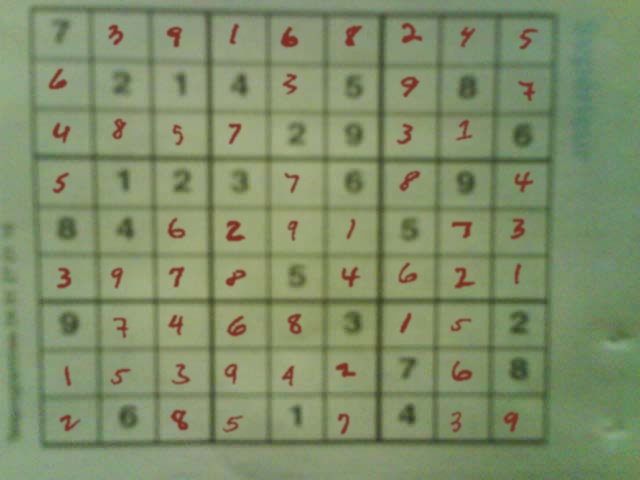 7 3 9 1 6 8 2 4 5
6 2 1 4 3 5 9 8 7
4 8 5 7 2 9 3 1 6
5 1 2 3 7 6 8 9 4
8 4 6 2 9 1 5 7 3
3 9 7 8 5 4 6 2 1
9 7 4 6 8 3 1 5 2
1 5 3 9 4 2 7 6 8
2 6 8 5 1 7 4 3 9